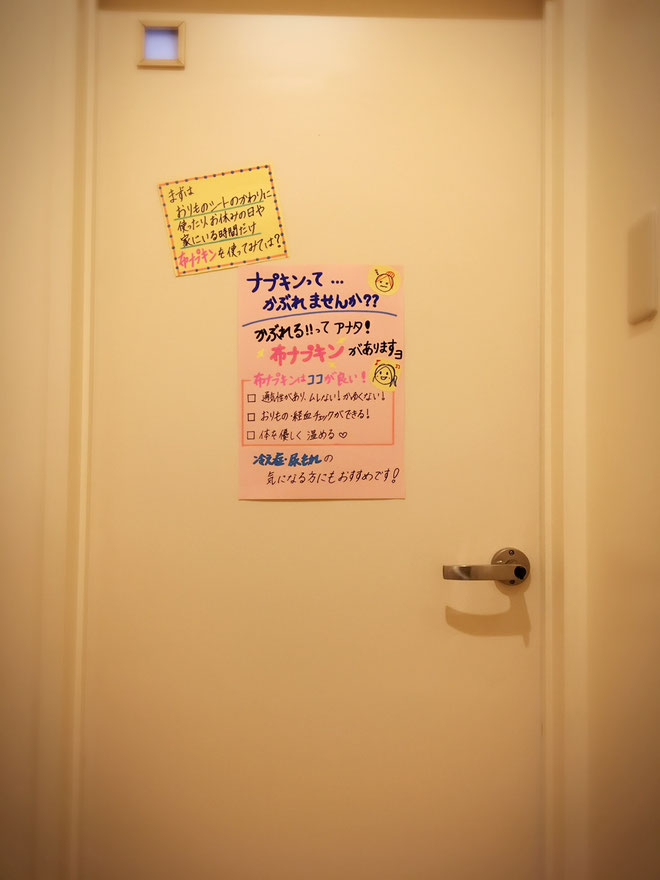 まずは
おりものシートのかわりに
使ったり、お休みの日や
家にいる時間だけ
布ナプキンを使ってみては?
ナプキンって…
かぶれませんか??
かぶれる!!って アナタ!
布ナプキンがありますョ
布ナプキンはココが良い!
□ 通気性があり、ムレない!かゆくない!
□ おりもの・経血チェックができる!
□ 体を優しく温める♡
冷え症・尿もれの
気になる方にもおすすめです!